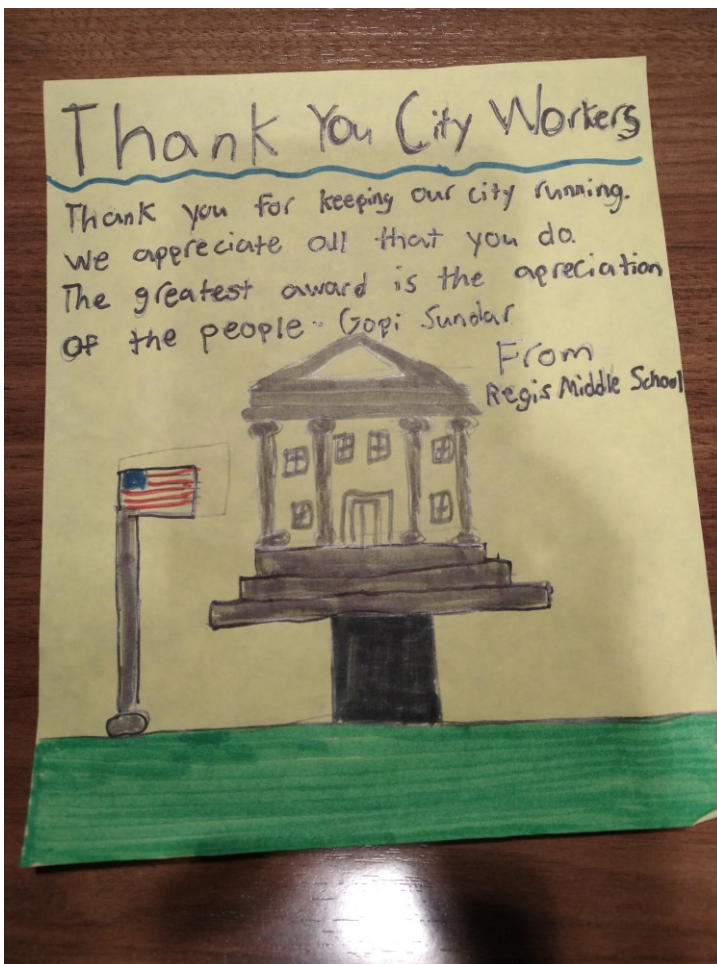 Thank You City Workers
Thank you for keeping our city running.
We appreciate all that you do.
The greatest award is the apreciation
of the people - Gopi Sundar
From
Regis Middle School